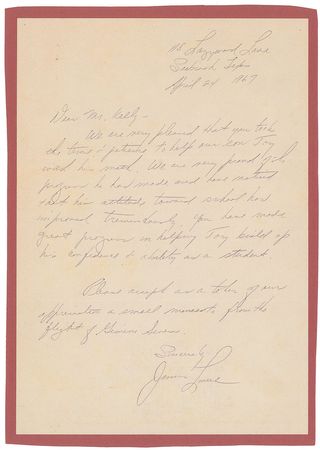 Lazywood Lane
Seabrook Texas
April 24 1967
Dear Mr. Kelly -
We are very pleased that you took
the time & patience to help our son Jay
with his math. We are very proud of the
progress he has made and have noticed
that his attitude toward school has
improved tremendously. You have made
great progress in helping Jay build up
his confidence & ability as a student.
Please accept as a token of our
appreciation a small memento from the
flight of Gemini Seven.
Sincerely
James Lovell